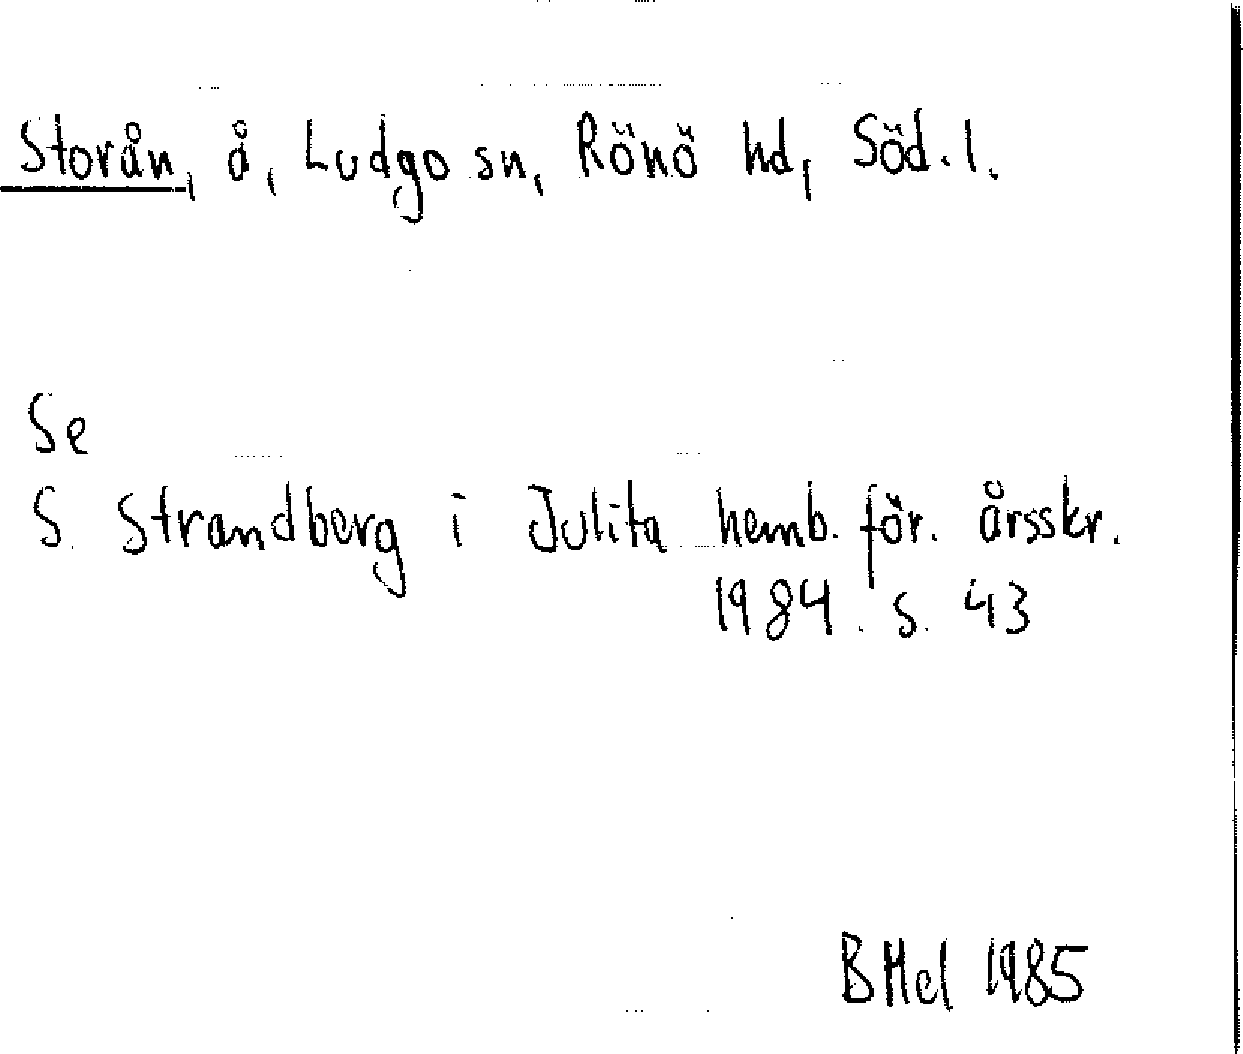 Storån, å, Ludgo sn, Rönö hd, Söd. l.
Se
S. Strandberg i Julita hemb. för. årsskr.
1984. s. 43
B Hel 1985